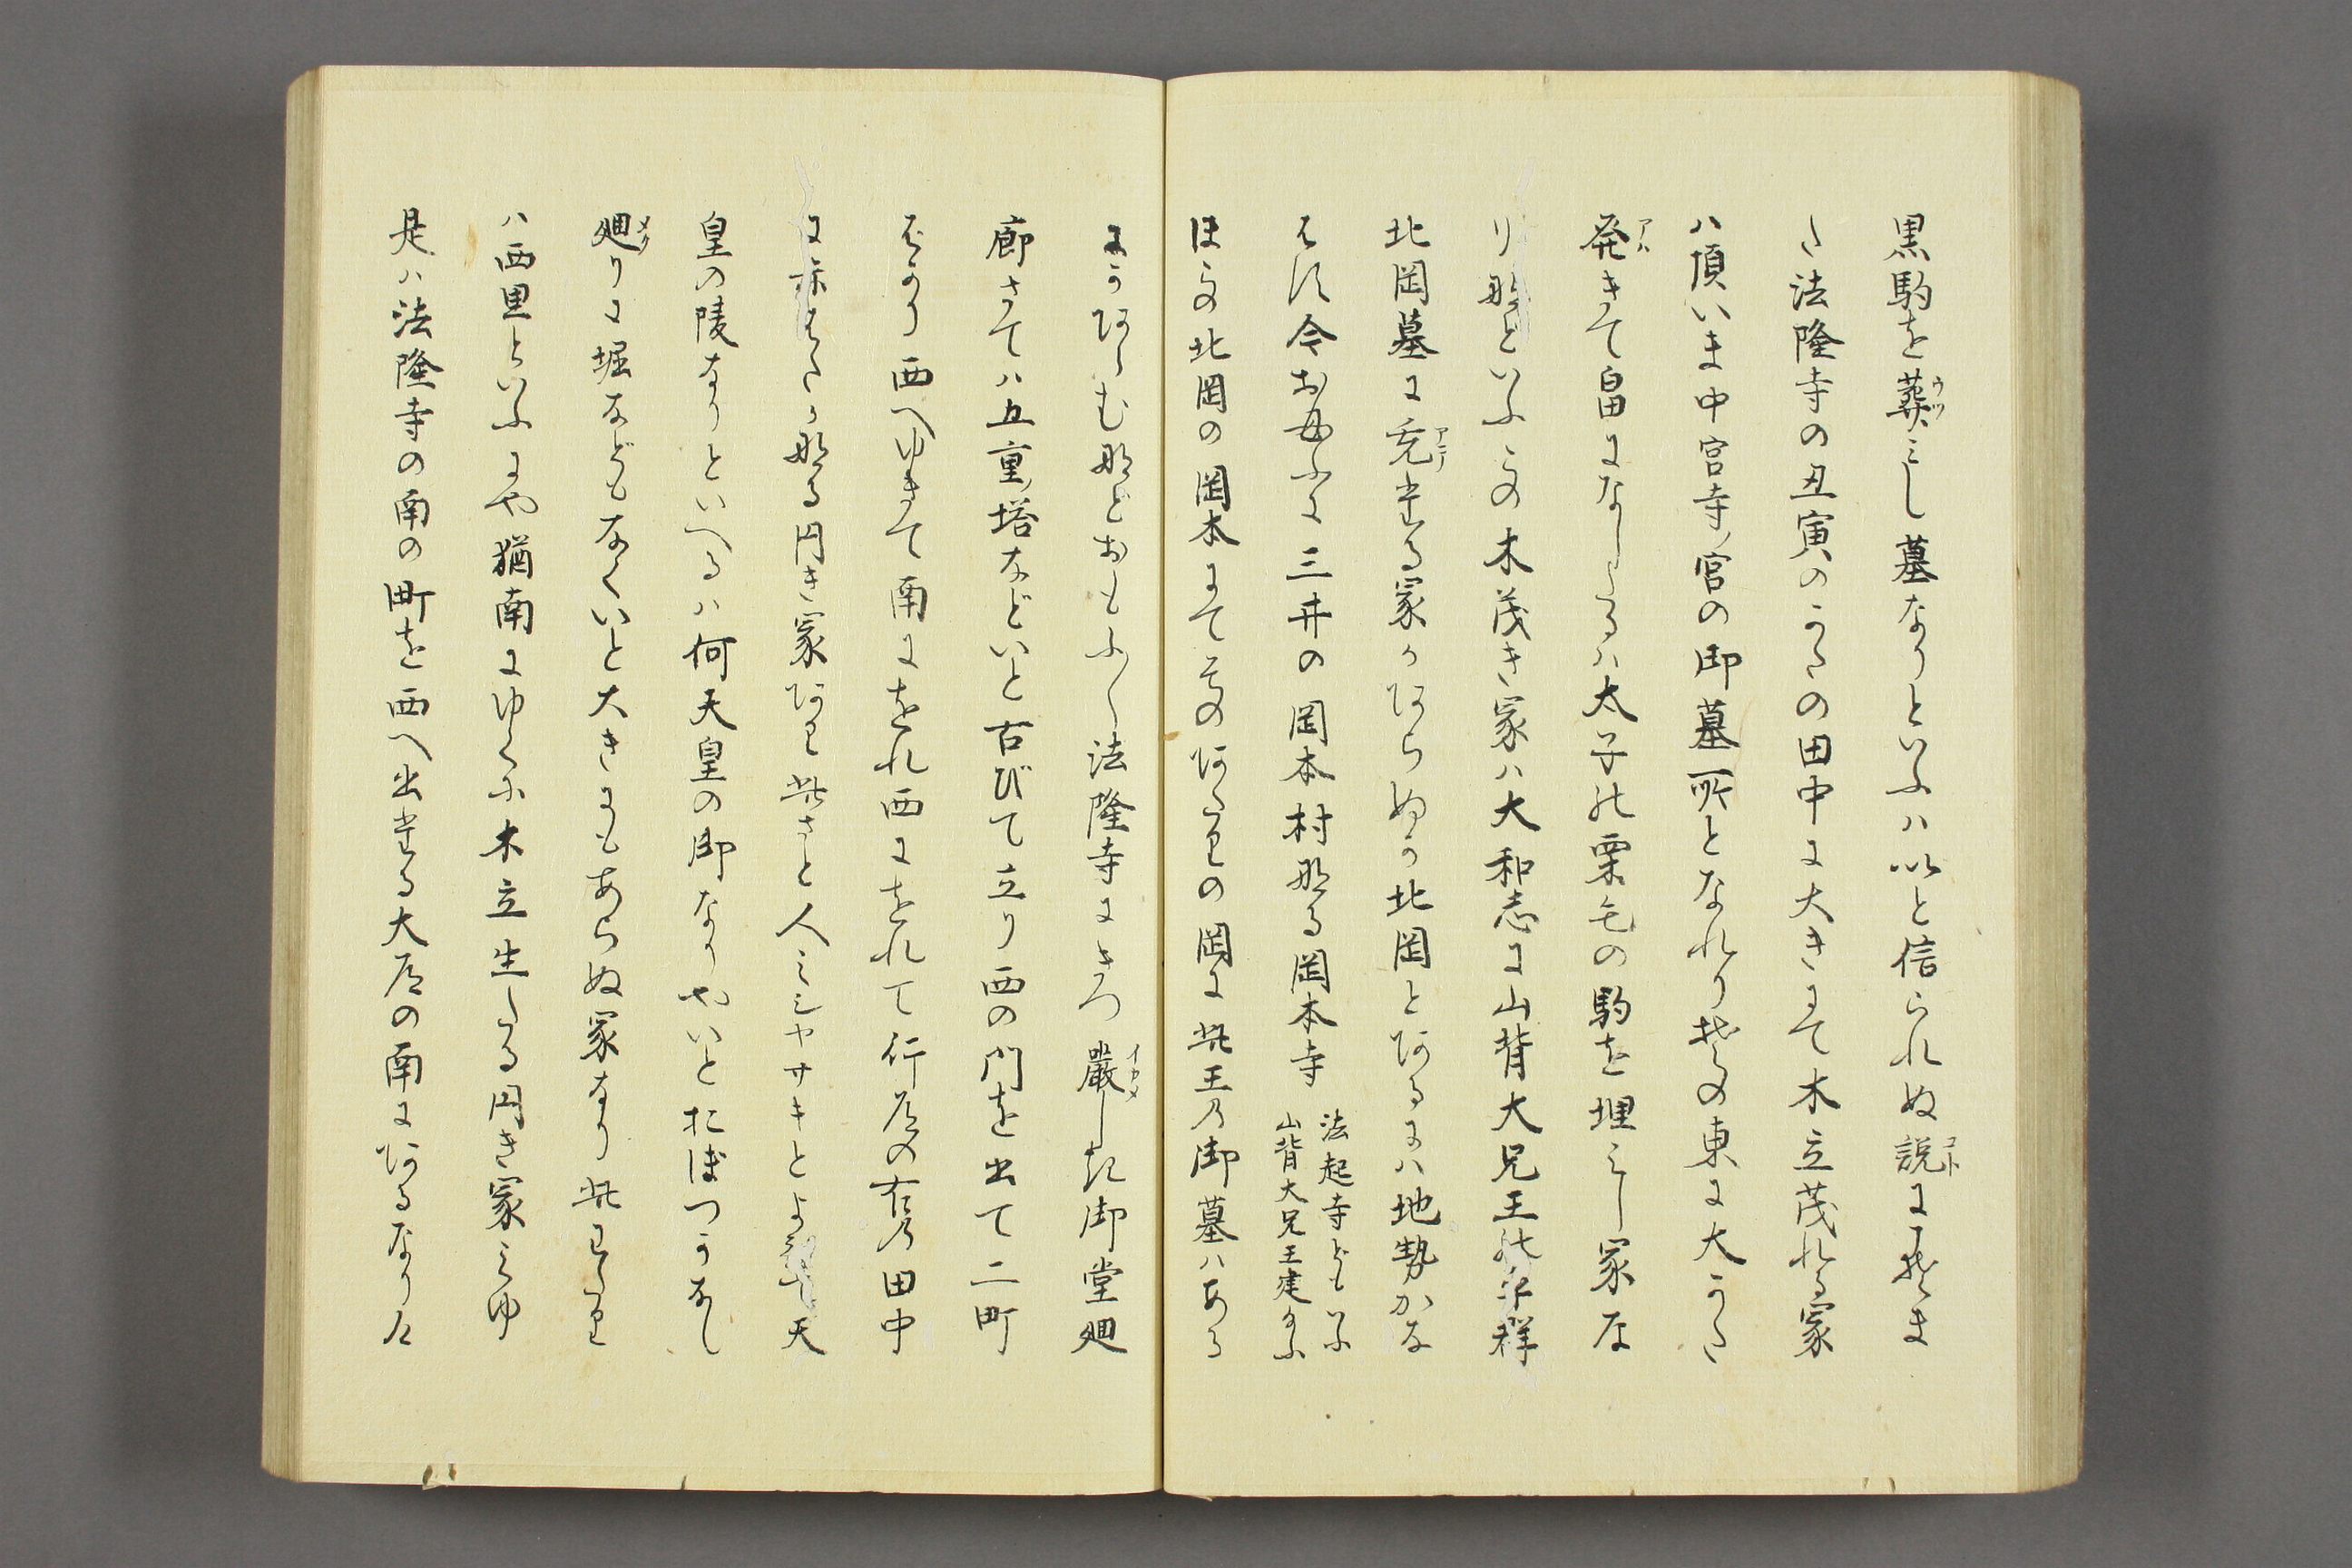 黒駒を葬みし墓なりといふハ以と信られぬ説にそま
た法隆寺の丑寅のかたの田中に大きにて木立茂れる冢
ハ頂いま中宮寺ノ宮の御墓所となれり其の東に大かた
発きて畠になしたるハ太子の栗毛の駒を埋みし冢な
り那といふこの木茂き冢ハ大和志に山背大兄王の平群
北岡墓に充たる冢かあらぬか北岡とあるにハ地勢かな
はす今おもふに三井の岡本村なる岡本寺
法起寺ともいふ
山背大兄王建給ふ
ほとの北岡の岡本にてそのあたりの岡に此王乃御墓ハある
にかあらむ那とおもふ〳〵法隆寺にきつ厳しき御堂廻
廊さてハ五重ノ塔などいと古びて立り西の門を出て二町
ばかり西へゆきて南にをれ西にをれて行道の右乃田中
に赤はたかなる円き冢あり此さと人ミシヤサキとよびて天
皇の陵なりといへるハ何天皇の御なりやいとおぼつかなし
廻りに堀などもなくいと大きにもあらぬ冢なり此わたり
ハ西里といふにや猶南にゆくに木立生たる円き冢みゆ
是ハ法隆寺の南の町を西へ出たる大道の南にあるなり道